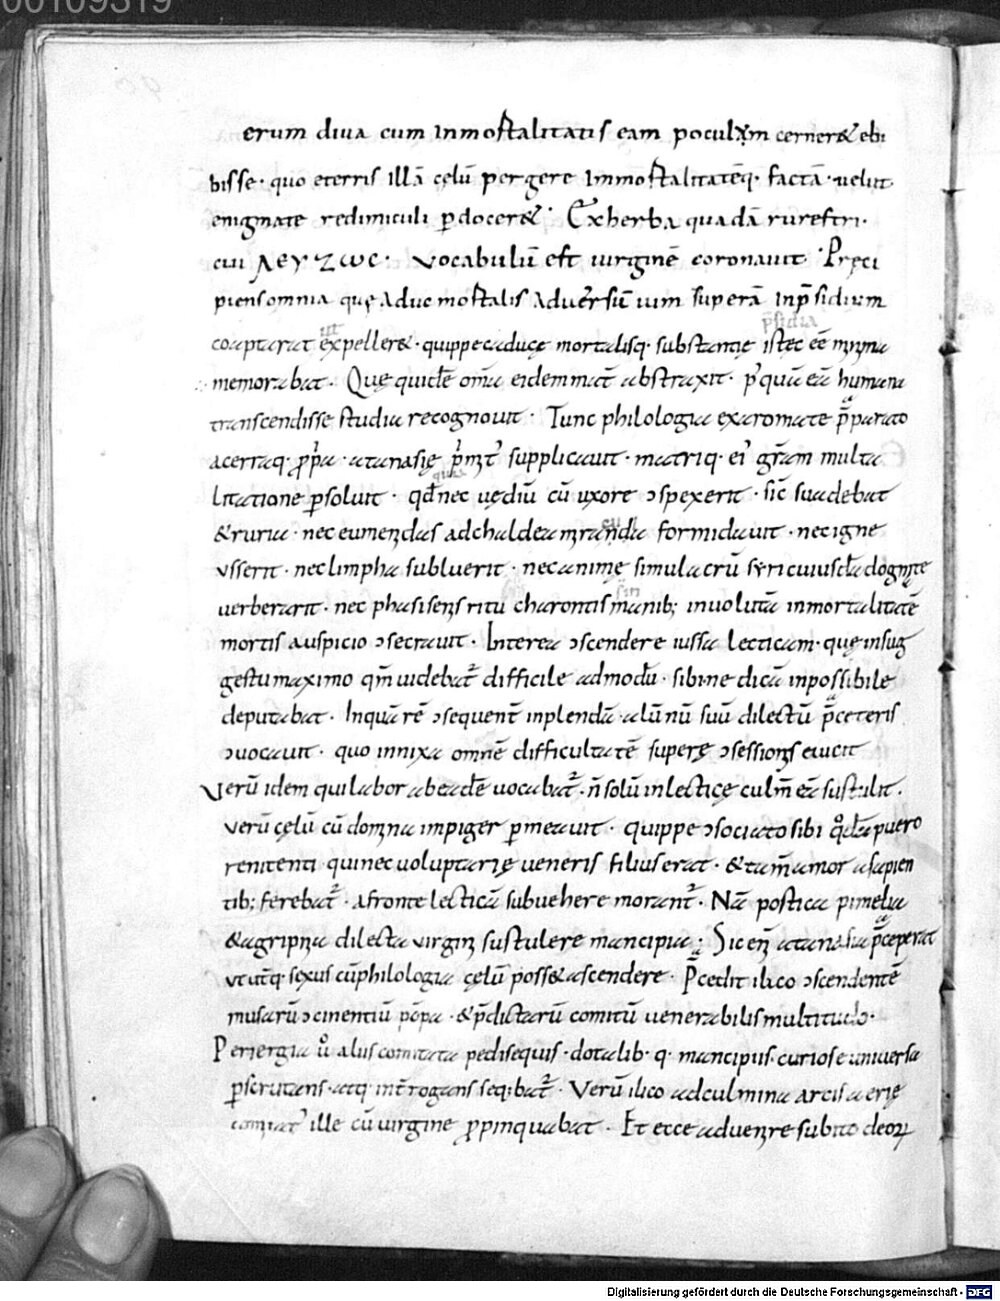 00109319
erum diua cum inmortalitatis eam poculum cerner& ebi
bisse · quo eterris illā cęlū pergere immortalitatēq· factā · uelut
enigmate redimiculi pdocer& · Ex herba quadā rurestri ·
cui ΛΕΥΖωС · vocabulū est uirginē coronauit · Pręci
piens omnia quę aduc mortalis aduersiū uim superā inp̄sidium
coaptarat expeller& · quippe caducę mortalisq· substantię istec eē
ut p̄sidia
memorabat · Quę quidē om̄a eidem mat̄ abstraxit · p quā eā humana
transcendisse studia recognouit · Tunc philologia exaromate p̄parato
acerraq· ppa · atanasię supplicauit · matriq· ei gr̄am multa
litatione psoluit · qd̄ nec uędiū cū uxore ɔspexerit · sic̄ suadebat
&ruria · nec eumenidas ad chaldea miranda formidauit · nec igne
vsserit · nec limpha subluerit · nec animę simulacrū syri cuiusdā dogmate
uerberarit · nec phasi senis ritu charontis manib; inuolutā inmortalitatē
mortis auspicio ɔsecrauit · Interea ɔscendere iussa lecticam · quę insug
gestu maximo qm̄ uidebat̄ difficile admodū · sibi ne dicā inpossibile
deputabat · Inquā rē ɔsequent̄ inplendā alūnū suū dilectū p̄ceteris
ɔuocauit · quo innixa omnē difficultatē superę ɔsessionis euicit
Verū idem qui labor abeadē uocabat̄ · n̄ solū in lecticę culm̄ eā sustulit ·
verū cęlū cū domina impiger pmeauit · quippe ɔsociato sibi puero
renitenti qui nec uoluptarię ueneris filius erat · & tam̄ amor asapien
tib; ferebat̄ · afronte lecticā subuehere morant̄ · Nā postica pimelia
& agripnia dilecta virgini sustulere mancipia ; Sic eni atanasia p̄ceperat
vt utq̄ sexus cū philologia cęlū poss& ascendere · P̄cedit ilico ɔscendentē
musarū ɔcinentiū pōpa · & p̄dictarū comitū uenerabilis multitudo ·
Periergia ū aliis comitata pedisequis · dotalib· q· mancipiis · curiose uniuersa
pscrutans · atq· int̄rogans seq·bat̄ · Verū ilico ad culmina arcis aerię
ille cū uirgine ppinquabat · Et ecce aduenire subito deoꝝ
Digitalisierung gefördert durch die Deutsche Forschungsgemeinschaft - DFG